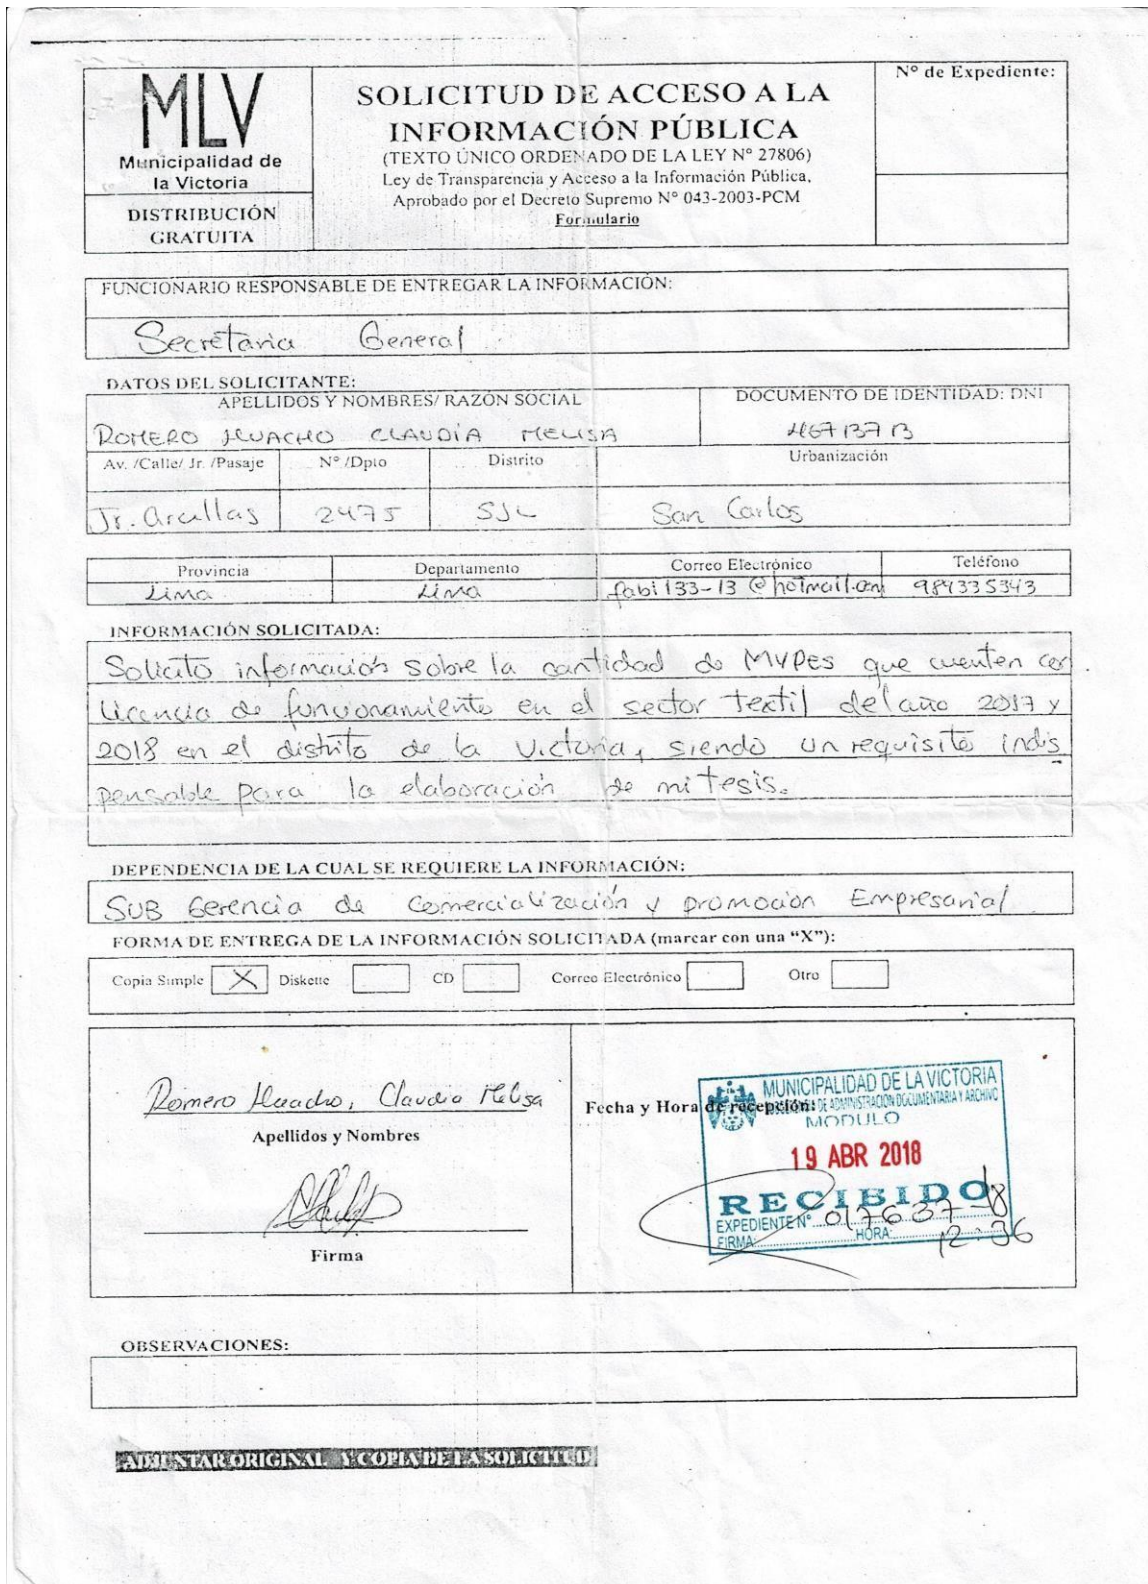 MLV
Municipalidad de
la Victoria
DISTRIBUCIÓN
GRATUITA
SOLICITUD DE ACCESO A LA
INFORMACIÓN PÚBLICA
(TEXTO ÚNICO ORDENADO DE LA LEY Nº 27806)
Ley de Transparencia y Acceso a la Información Pública,
Aprobado por el Decreto Supremo Nº 043-2003-PCM
Formulario
Nº de Expediente:
FUNCIONARIO RESPONSABLE DE ENTREGAR LA INFORMACIÓN:
Secretaria General
DATOS DEL SOLICITANTE:
APELLIDOS Y NOMBRES/ RAZÓN SOCIAL
DOCUMENTO DE IDENTIDAD: DNI
ROMERO HUACHO CLAUDIA MELISA
46713713
Av. /Calle/ Jr. /Pasaje
Nº /Dpto
Distrito
Urbanización
Jr. arcillas
2475
SJL
San Carlos
Provincia
Departamento
Correo Electrónico
Teléfono
Lima
Lima
fabi133-13@hotmail.com
984335343
INFORMACIÓN SOLICITADA:
Solicito información sobre la cantidad de MYPES que cuenten con
licencia de funcionamiento en el sector textil del año 2017 y
2018 en el distrito de la Victoria, siendo un requisito indis
pensable para la elaboración de mi tesis.
DEPENDENCIA DE LA CUAL SE REQUIERE LA INFORMACIÓN:
SUB Gerencia de Comercialización y promoción Empresarial
FORMA DE ENTREGA DE LA INFORMACIÓN SOLICITADA (marcar con una “X”):
Copia Simple X Diskette CD Correo Electrónico Otro
Romero Huacho, Claudia Melisa
Apellidos y Nombres
Firma
Fecha y Hora de recepción:
MUNICIPALIDAD DE LA VICTORIA
DE ADMINISTRACIÓN DOCUMENTARIA Y ARCHIVO
MODULO
19 ABR 2018
RECIBIDO
EXPEDIENTE Nº 017637-18
FIRMA: HORA: 12:36
OBSERVACIONES:
ADJUNTAR ORIGINAL Y COPIA DE LA SOLICITUD